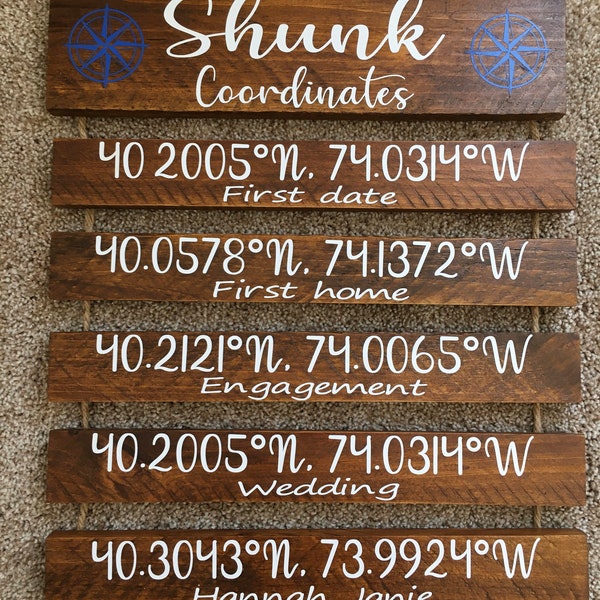 Shunk
Coordinates
40 2005°N, 74.0314°W
First date
40.0578°N, 74.1372°W
First home
40.2121°N, 74.0065°W
Engagement
40.2005°N, 74.0314°W
Wedding
40.3043°N, 73.9924°W
Hannah Janie